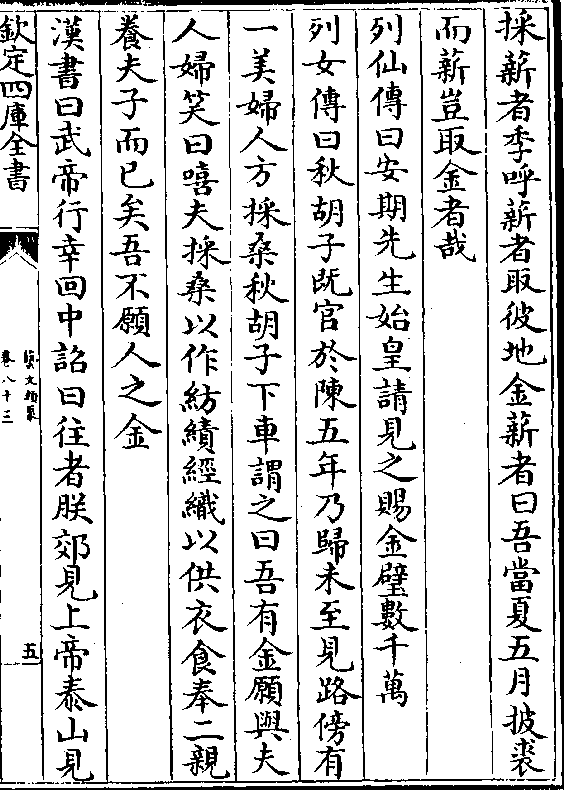 採薪者季呼薪者取彼地金薪者曰吾當夏五月披裘
而薪豈取金者哉
列仙傳曰安期先生始皇請見之賜金璧數千萬
列女傳曰秋胡子既官於陳五年乃歸未至見路傍有
一美婦人方採桑秋胡子下車謂之曰吾有金願與夫
人婦笑曰嘻夫採桑以作紡績經織以供衣食奉二親
養夫子而已矣吾不願人之金
漢書曰武帝行幸回中詔曰往者朕郊見上帝泰山見
欽定四庫全書
藝文類聚
卷八十三
五